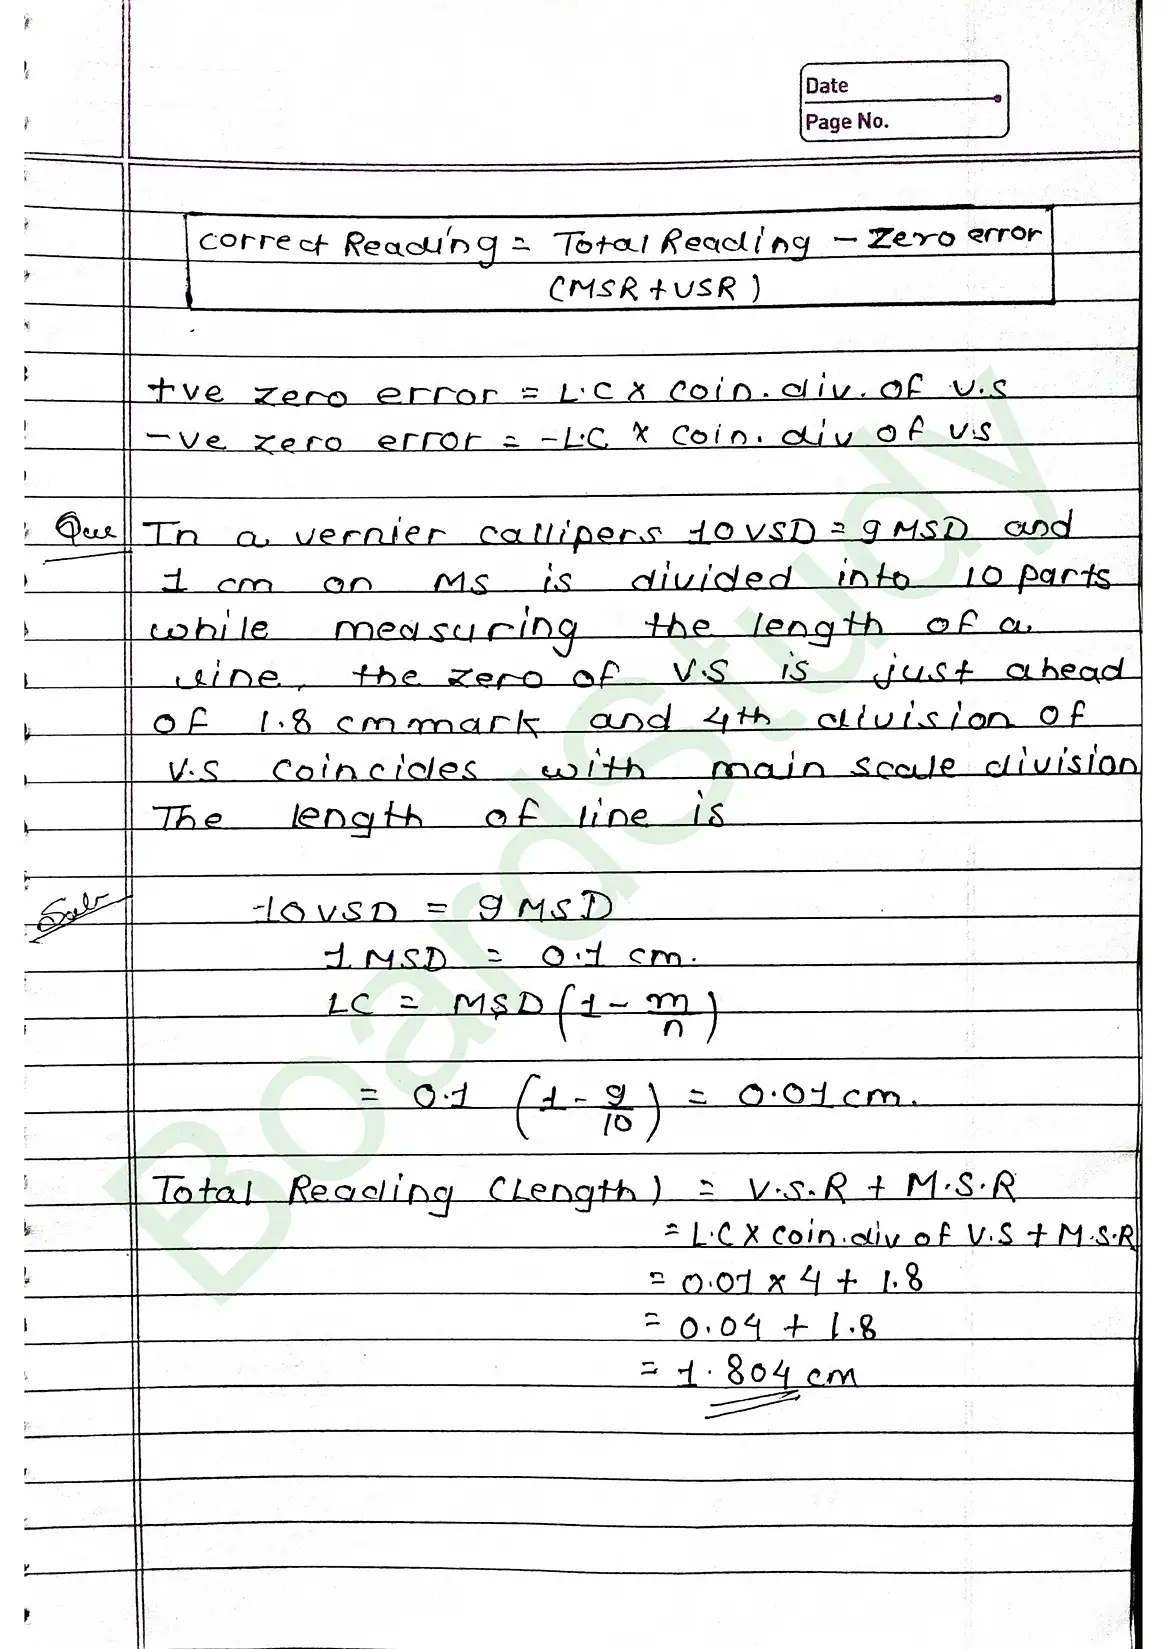 Date
Page No.
Correct Reading = Total Reading - Zero error
(MSR + VSR)
+ve zero error = L.C x coin. div. of V.S
-ve zero error = -L.C x coin. div of V.S
Que In a vernier callipers 10 VSD = 9 MSD and
1 cm on MS is divided into 10 parts
while measuring the length of a
line, the zero of V.S is just ahead
of 1.8 cm mark and 4th division of
V.S coincides with main scale division
The length of line is
Soln 10 VSD = 9 MSD
1 MSD = 0.1 cm.
LC = MSD (1 - m/n)
= 0.1 (1 - 9/10) = 0.01 cm.
Total Reading (Length) = V.S.R + M.S.R
= L.C x coin. div of V.S + M.S.R
= 0.01 x 4 + 1.8
= 0.04 + 1.8
= 1.804 cm
BoardStudy